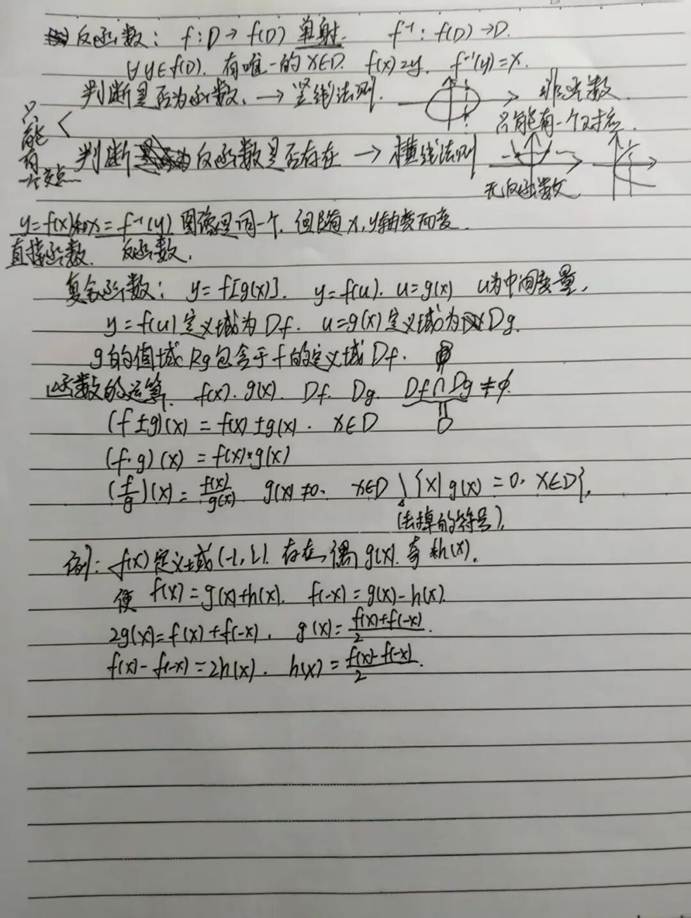 反函数: f:D→f(D) 单射. f⁻¹: f(D)→D.
∀y∈f(D), 有唯一的x∈D. f(x)=y. f⁻¹(y)=x.
判断是否为函数, → 竖线法则. → 非函数
只能有一个对应.
只能有一个交点
判断反函数是否存在 → 横线法则
无反函数
y=f(x)和x=f⁻¹(y) 图像是同一个, 但随x,y轴变而变
直接函数. 反函数.
复合函数: y=f[g(x)]. y=f(u). u=g(x) u为中间变量,
y=f(u)定义域为Df. u=g(x)定义域为Dg.
g的值域Rg包含于f的定义域Df.
函数的运算. f(x). g(x). Df. Dg. Df∩Dg≠∅.
D
(f±g)(x)=f(x)±g(x). x∈D
(f·g)(x)=f(x)·g(x)
(f/g)(x)=f(x)/g(x) g(x)≠0. x∈D \ {x|g(x)=0. x∈D},
(去掉的符号).
例: f(x)定义域(-l,l). 存在偶g(x). 奇h(x).
使 f(x)=g(x)+h(x). f(-x)=g(x)-h(x).
2g(x)=f(x)+f(-x). g(x)=f(x)+f(-x)/2.
f(x)-f(-x)=2h(x). h(x)=f(x)-f(-x)/2.